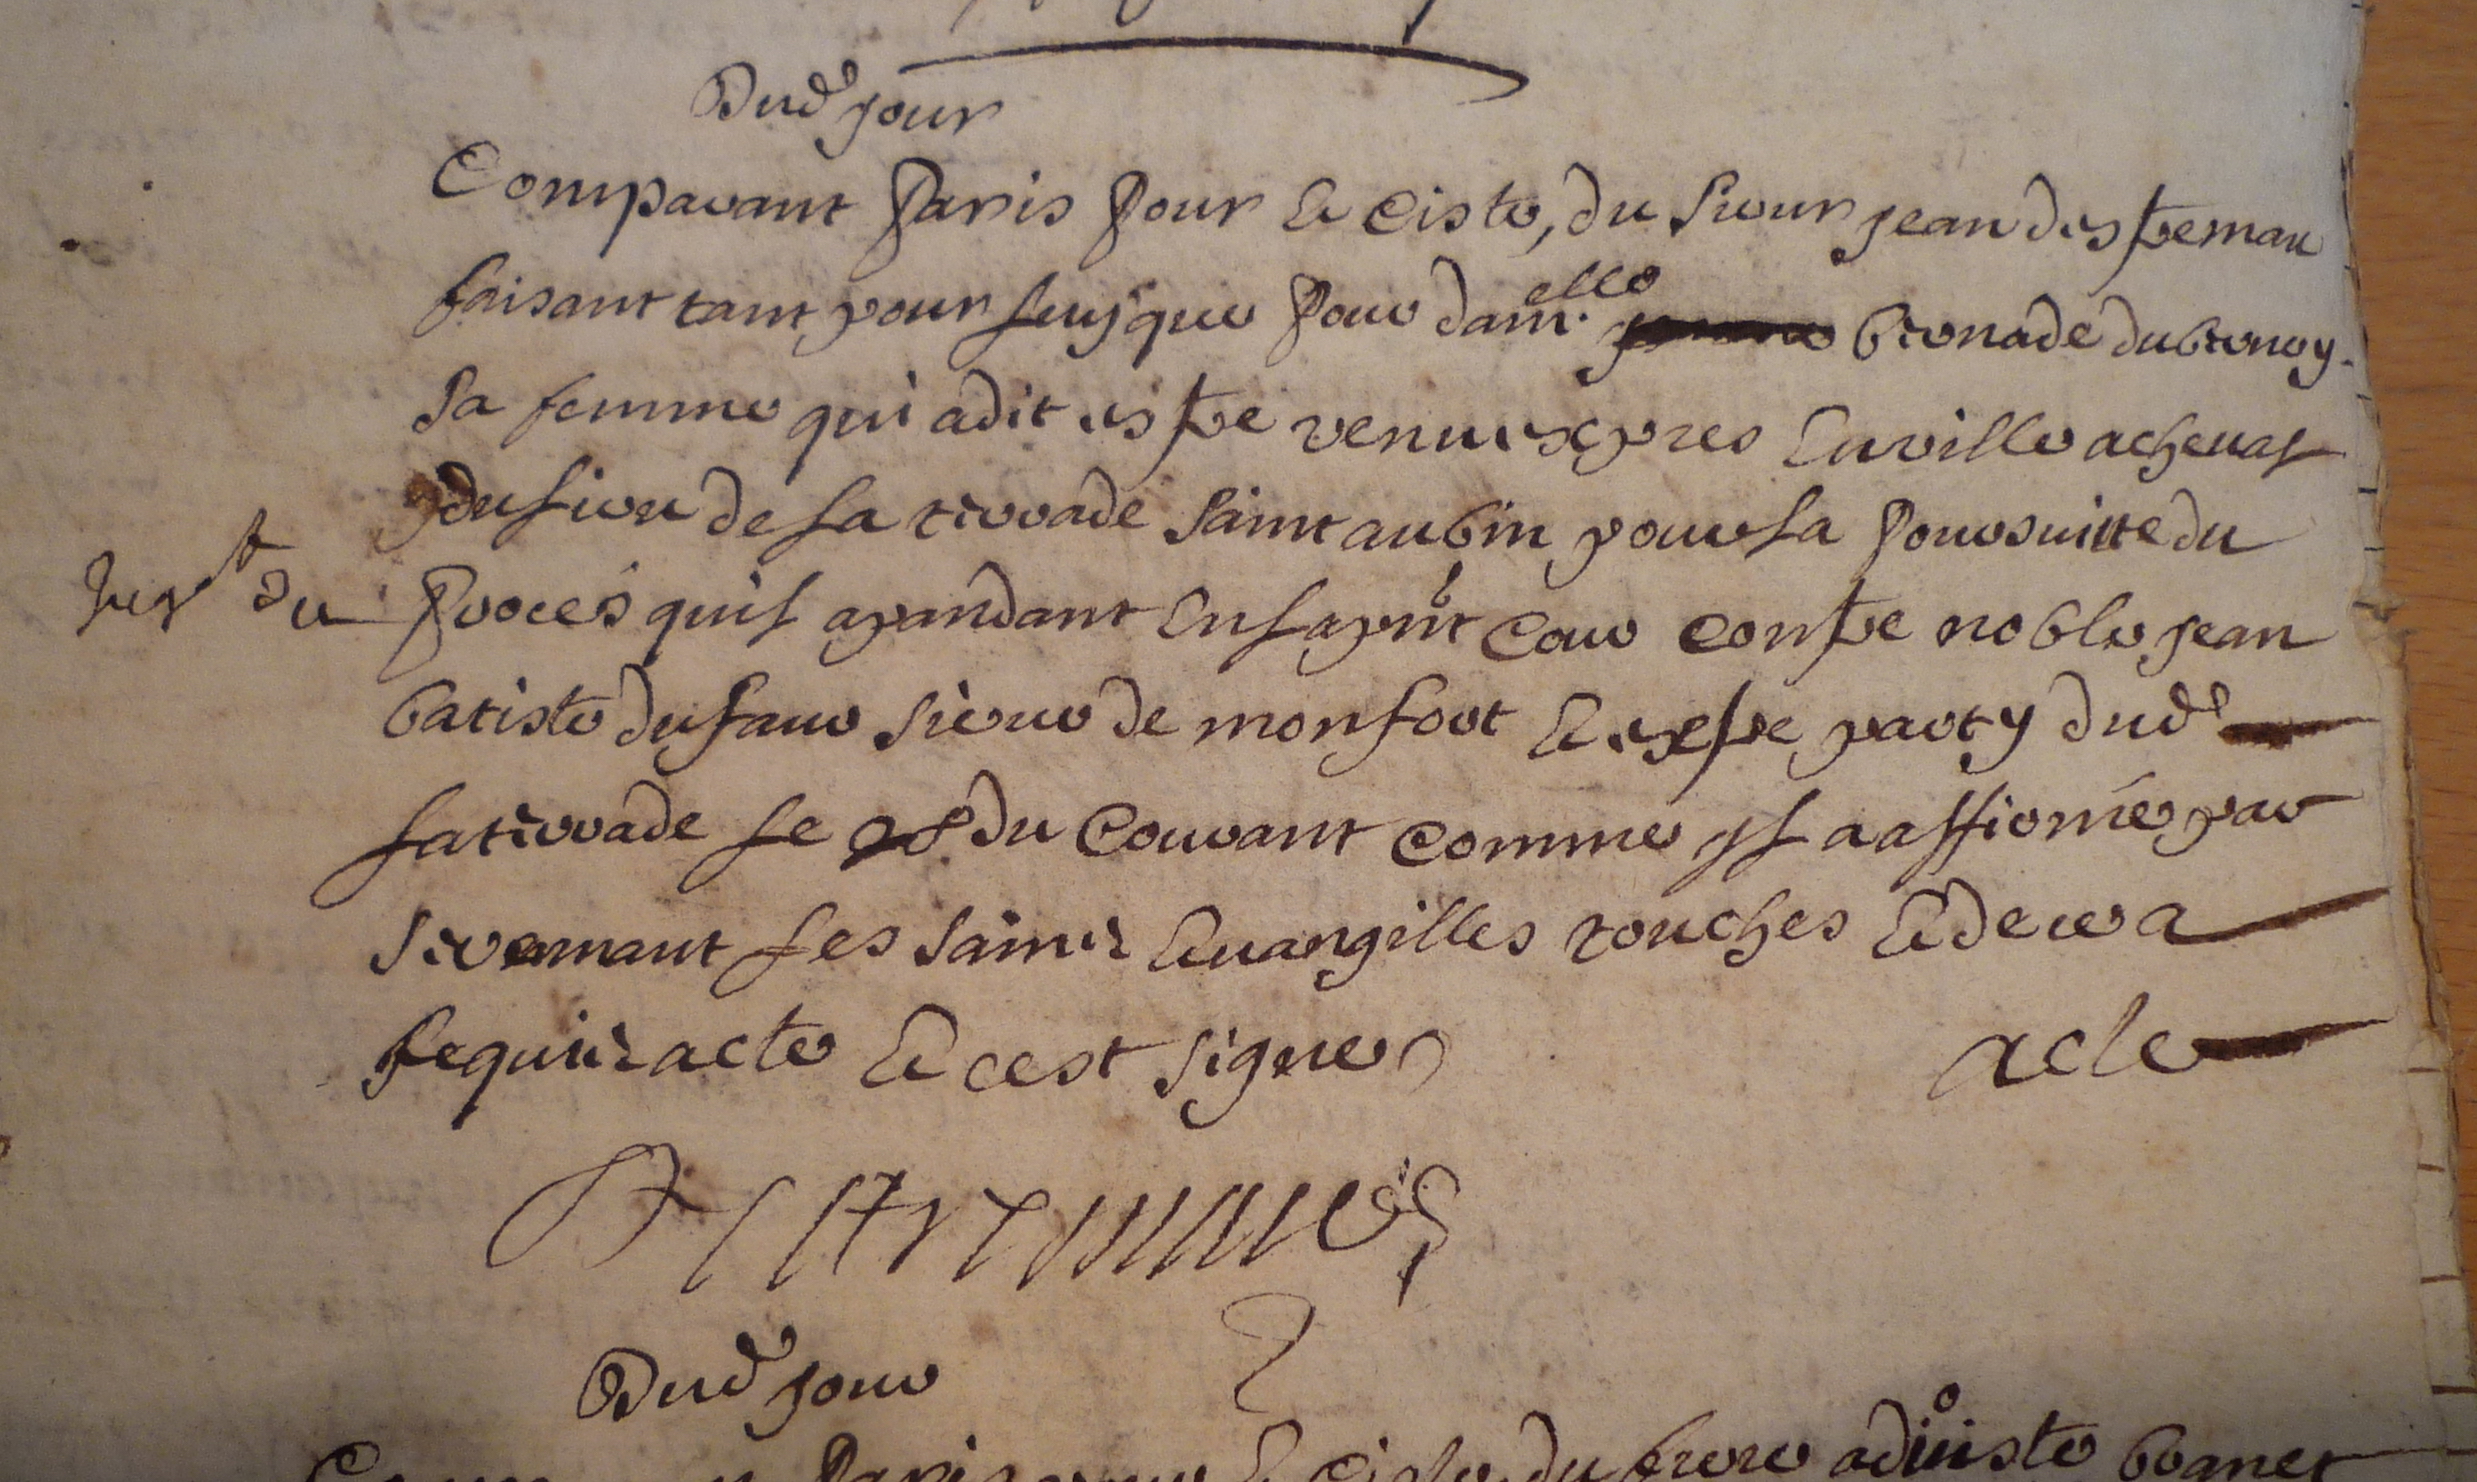 Dud jour
Comparant Paris pour & ciste, du sieur jean destremau
faisant tant pour luy que pour dam.elle bernade dubernoy
sa femme qui a dit estre venu expres en ville acheval
du lieu de la tirrade saint aubin pour la poursuitte du
proces quil a pandant en la pnt cour contre noble jean
batiste dufaur sieur de monfort & estre party dud
latirrade le 28 du courant comme jl a affirmé par
seremant les saints Evangilles touches & de ce a
requis acte & cest signe
acte
Destremau
Dud jour
Paris pour & ciste du frere